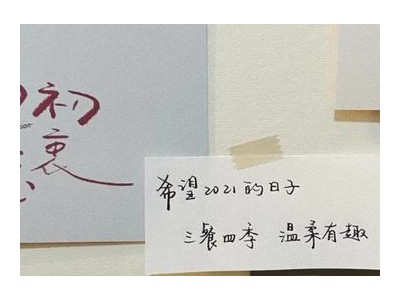 初
衷
希望2021的日子
三餐四季 温柔有趣